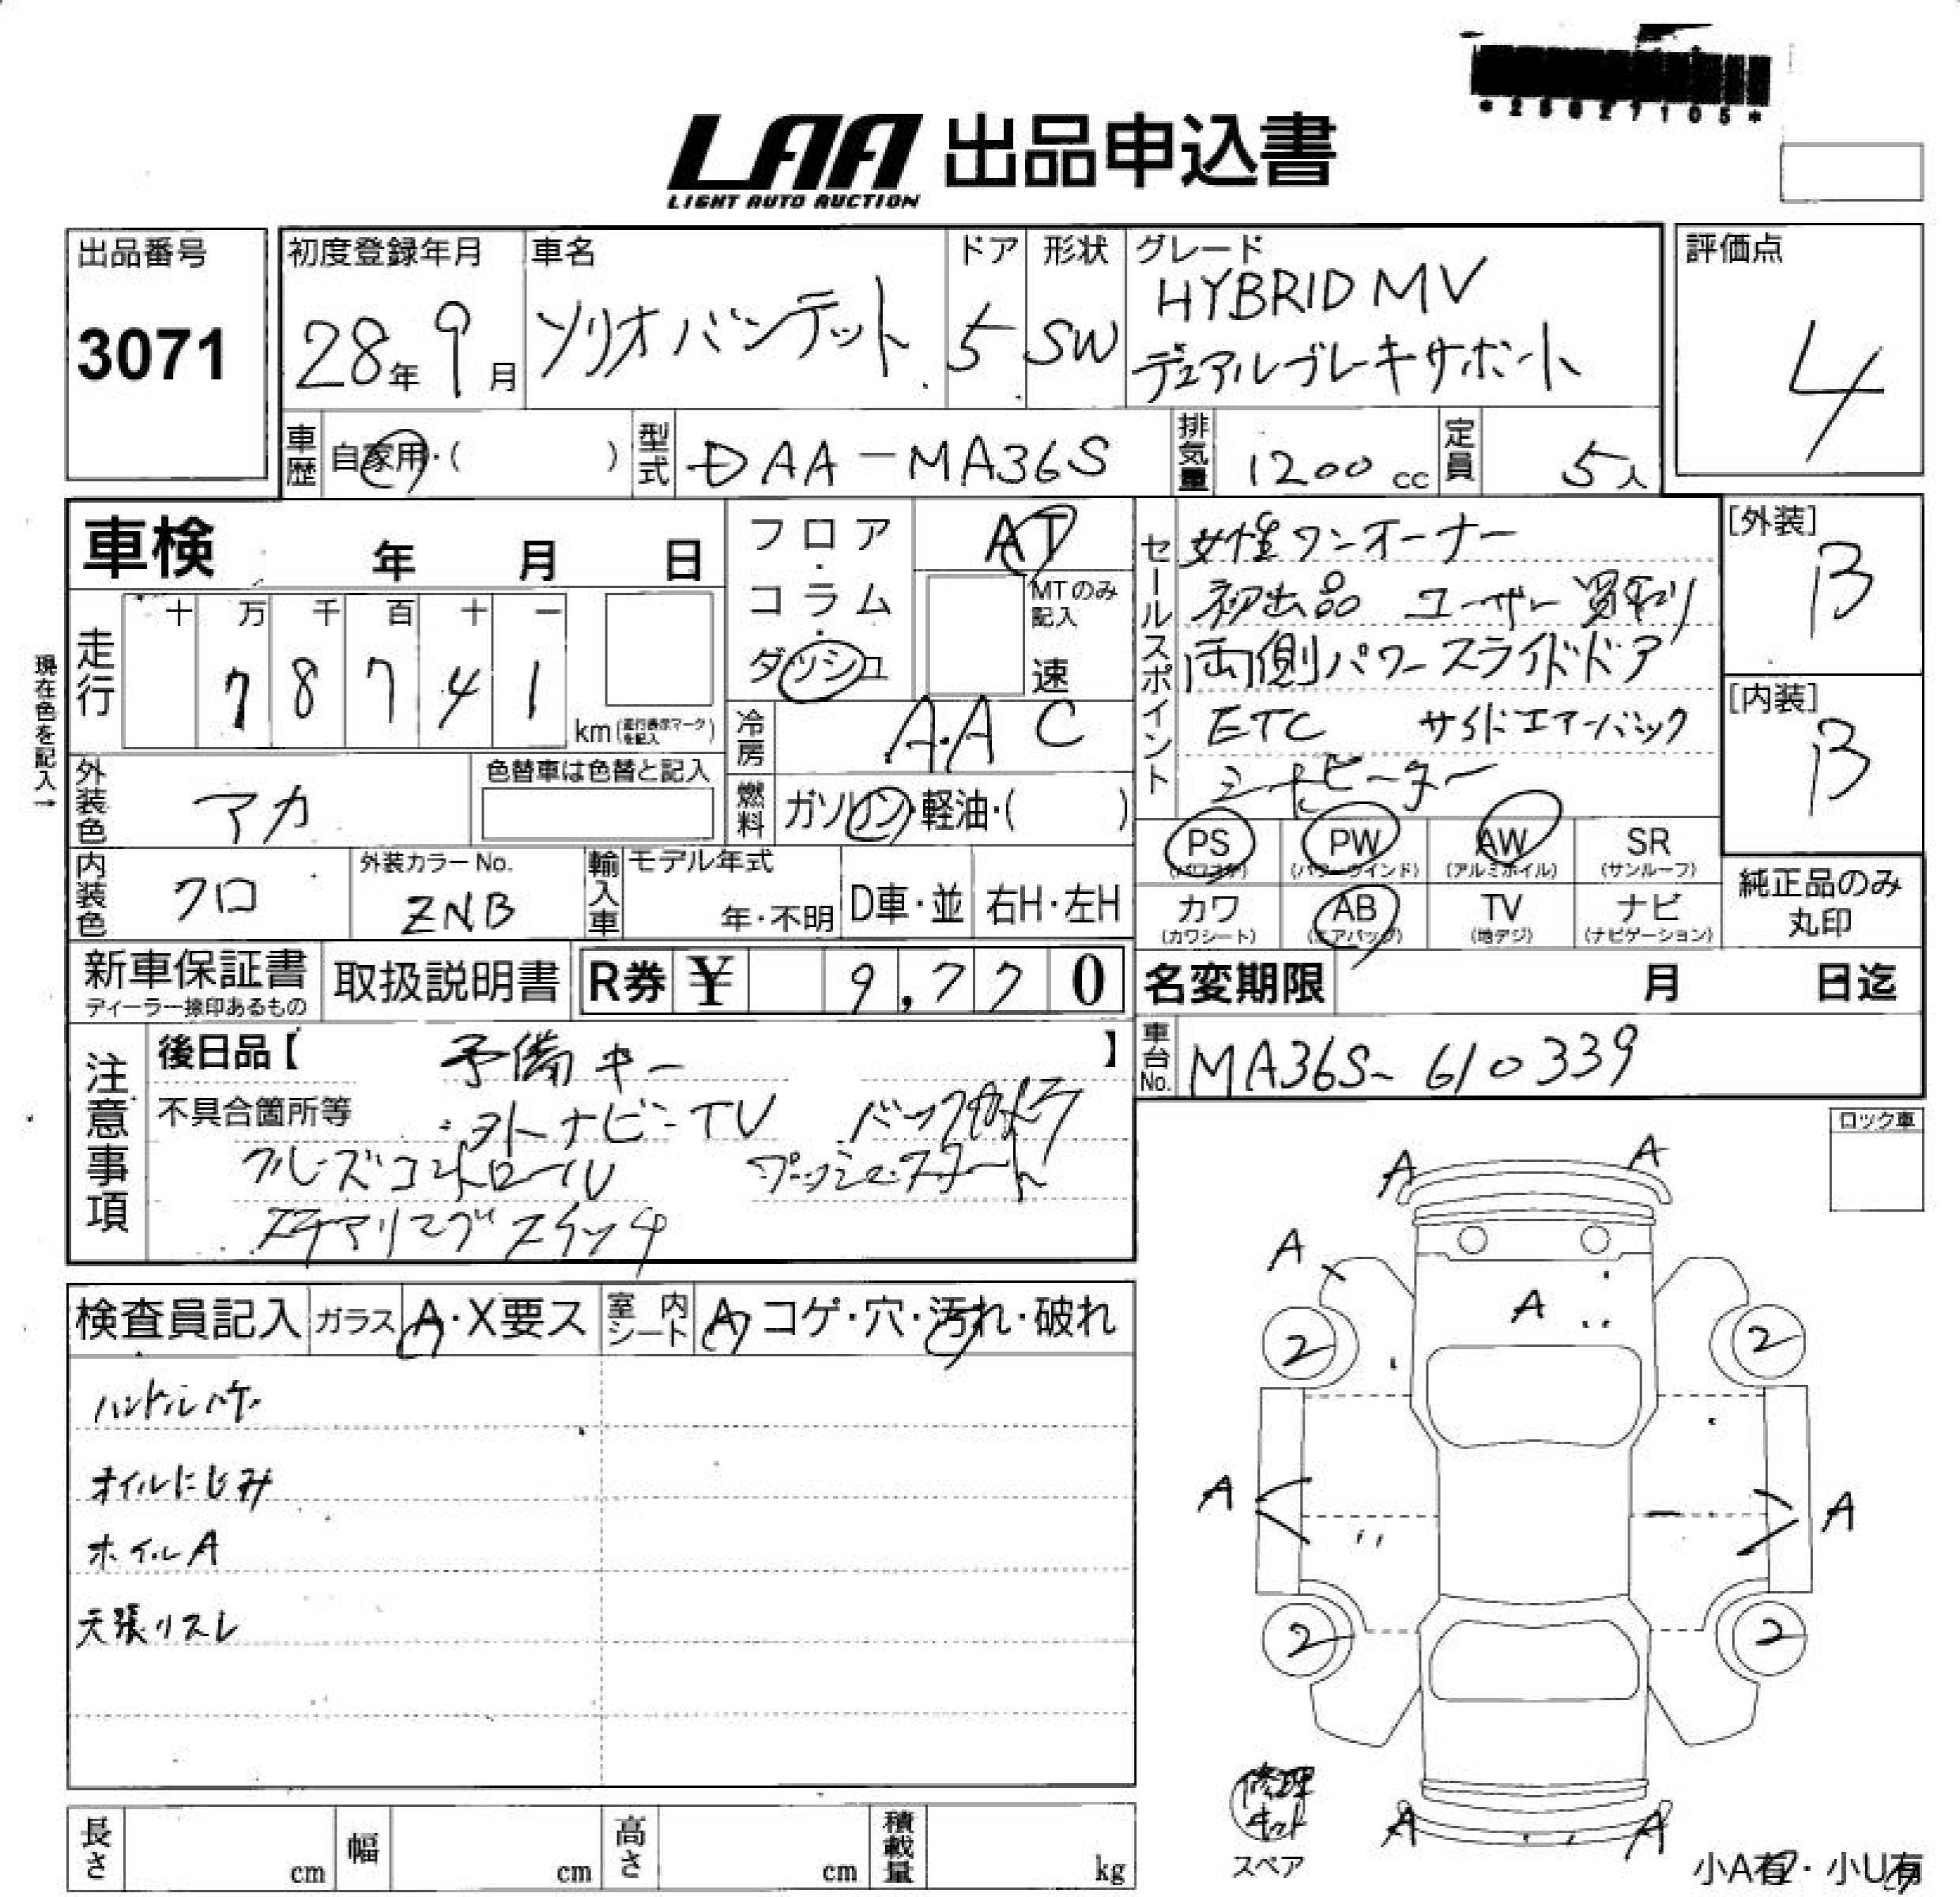 *25027105*
LAA 出品申込書
LIGHT AUTO AUCTION
出品番号
3071
初度登録年月
28年 9月
車名
ソリオバンデット
ドア
5
形状
SW
グレード
HYBRID MV
デュアルブレーキサポート
評価点
4
車歴 自家用・( )
型式 DAA-MA36S
排気量 1200 cc
定員 5人
車検 年 月 日
フロア・コラム・ダッシュ
AT
MTのみ記入
速
現在色を記入→
走行
十 万 千 百 十 一
7 8 7 4 1
km (走行表示マークを記入)
冷房 A.A C
外装色 アカ
色替車は色替と記入
燃料 ガソリン・軽油・( )
内装色 クロ
外装カラーNo.
ZNB
輸入車
モデル年式
年・不明
D車・並
右H・左H
セールスポイント
女性ワンオーナー
初出品 ユーザー買取り
両側パワースライドドア
ETC サイドエアーバック
シートヒーター
[外装]
B
[内装]
B
PS PW AW SR
(パワステ) (パワーウインド) (アルミホイル) (サンルーフ)
カワ AB TV ナビ
(カワシート) (エアバッグ) (地デジ) (ナビゲーション)
純正品のみ
丸印
新車保証書
ディーラー捺印あるもの
取扱説明書
R券 ¥ 9,770
名変期限 月 日迄
車台No. MA36S-610339
注意事項
後日品【 予備キー 】
不具合箇所等
ナビ TV バックカメラ
クルーズコントロール プッシュスタート
ステアリングスイッチ
ロック車
検査員記入
ガラス A・X要ス
室内シート A・コゲ・穴・汚れ・破れ
ハンドルハゲ
オイルにじみ
ホイルA
天張リスレ
A A
A
A
2 2
A A
2 2
A A
修理キット
スペア
小A有・小U有
長さ cm
幅 cm
高さ cm
積載量 kg